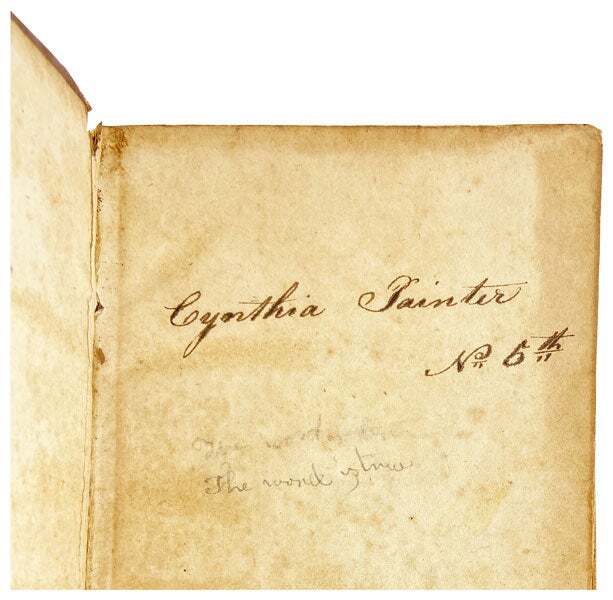 Cynthia Painter
No 5th
The word is true